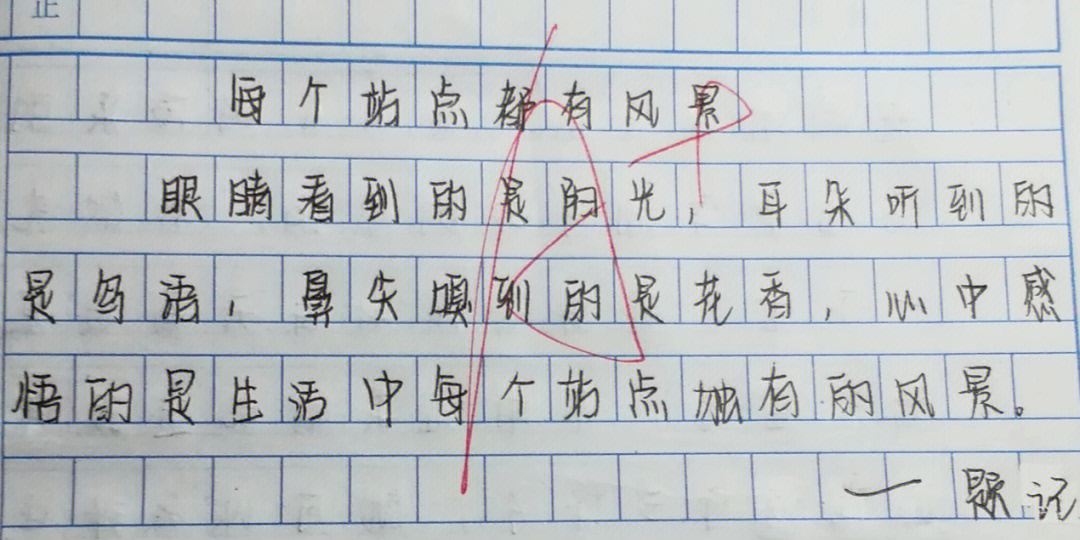 正
每个站点都有风景
眼睛看到的是的光，耳朵听到的
是鸟语，鼻尖嗅到的是花香，心中感
悟的是生活中每个站点独有的风景。
——题记